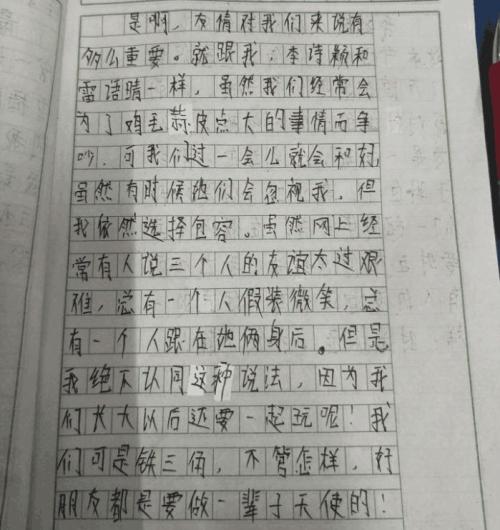 是啊，友情对我们来说有
多么重要。就跟我，李诗颖和
雷语晴一样，虽然我们经常会
为了鸡毛蒜皮点大的事情而争
吵，可我们过一会儿就会和好
虽然有时候她们会忽视我，但
我依然选择包容。虽然网上经
常有人说三个人的友谊太过艰
难，总有一个人假装微笑，总
有一个人跟在她俩身后。但是
我绝不认同这种说法，因为我
们长大以后还要一起玩呢！我
们可是铁三俩，不管怎样，好
朋友都是要做一辈子天使的！